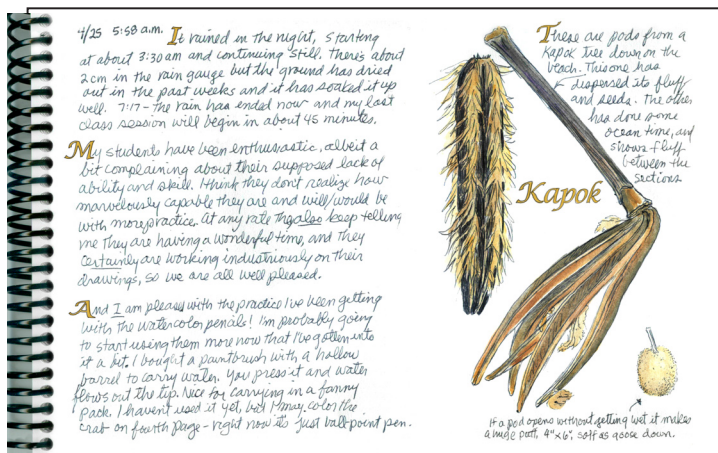 4/25 5:58 a.m. It rained in the night, starting
at about 3:30 am and continuing still. There's about
2cm in the rain gauge but the ground has dried
out in the past weeks and it has soaked it up
well. 7:17 - the rain has ended now and my last
class session will begin in about 45 minutes.
My students have been enthusiastic, albeit a
bit complaining about their supposed lack of
ability and skill. I think they don't realize how
marvelously capable they are and will/would be
with more practice. At any rate they also keep telling
me they are having a wonderful time, and they
certainly are working industriously on their
drawings, so we are all well pleased.
And I am pleased with the practice I've been getting
with the watercolor pencils! I'm probably going
to start using them more now that I've gotten into
it a bit. I bought a paintbrush with a hollow
barrel to carry water. You press it and water
flows out the tip. Nice for carrying in a fanny
pack. I haven't used it yet, but I may color the
crab on fourth page - right now it's just ball point pen.
These are pods from a
Kapok tree down on the
beach. This one has
dispersed its fluff
and seeds. The other
has done some
ocean time, and
shows fluff
between the
sections
Kapok
If a pod opens without getting wet it makes
a huge puff, 4"x6", soft as goose down.